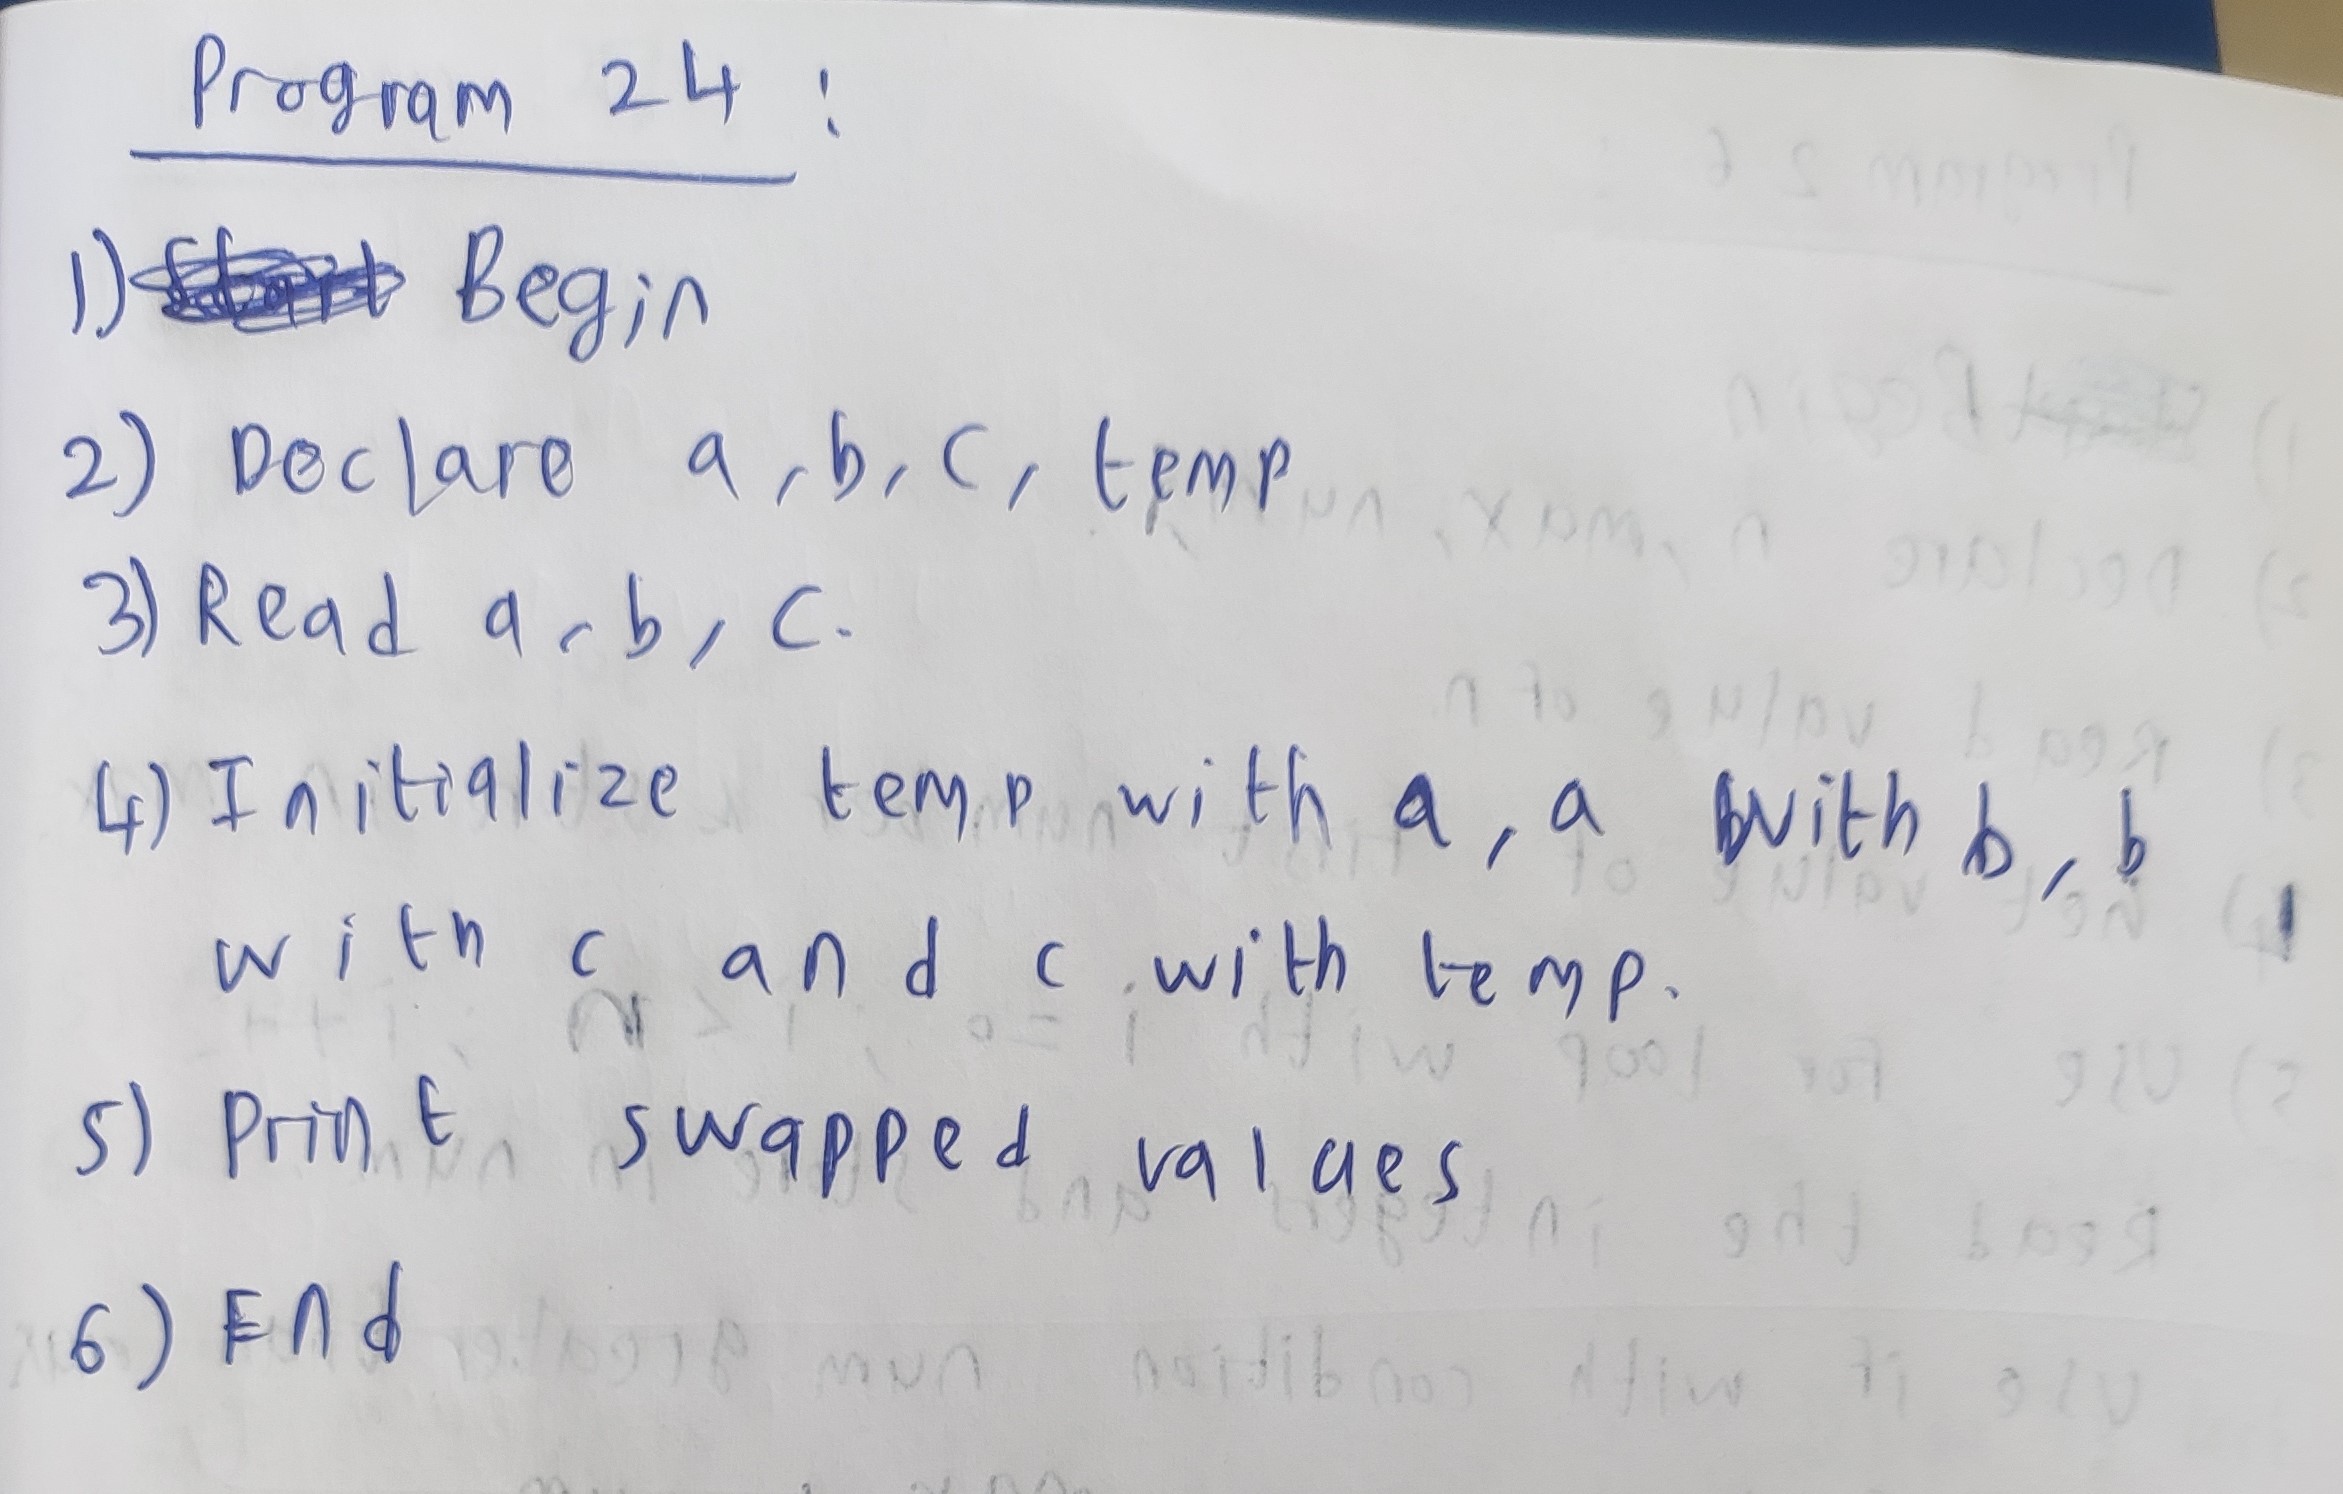 Program 24 :
1) Begin
2) Declare a, b, c, temp
3) Read a, b, c.
4) Initialize temp with a, a with b, b
with c and c with temp.
5) Print swapped values
6) End